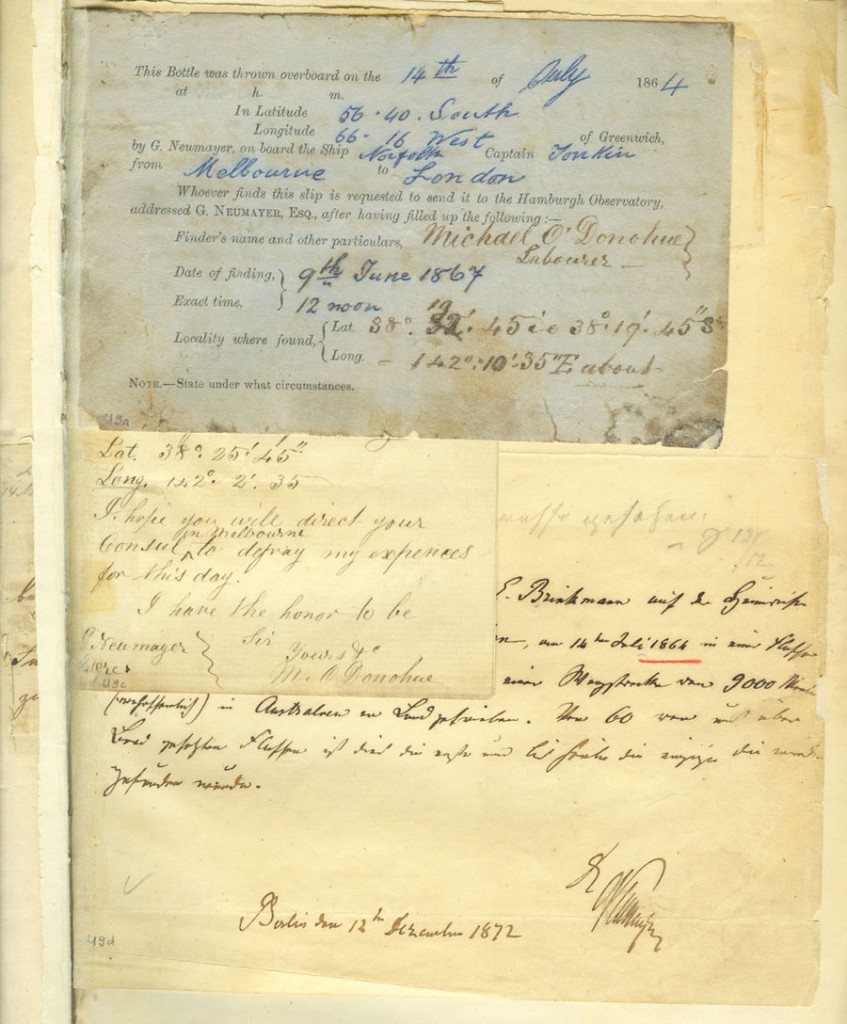 This Bottle was thrown overboard on the 14th of July 1864
at h. m.
In Latitude 56 · 40 · South
Longitude 66 · 16 West of Greenwich,
by G. Neumayer, on board the Ship Norfolk Captain Tonkin
from Melbourne to London
Whoever finds this slip is requested to send it to the Hamburgh Observatory,
addressed G. NEUMAYER, ESQ., after having filled up the following :—
Finder's name and other particulars, Michael O'Donohue
Labourer —
Date of finding, 9th June 1867
Exact time, 12 noon
19
Locality where found, Lat. 38° 32' · 45 i e 38° · 19' · 45" S
Long. — 142° · 10' · 35" E about
NOTE.—State under what circumstances.
49a
Lat. 38° 25' 45"
Long. 142° 2' 35
I hope you will direct your
in Melbourne
Consul to defray my expences
for this day.
I have the honor to be
Sir
G Neumayer Yours &c
M. O Donohue
49c
gesehen.
12/
12
E. Brinkmann auf der
am 14ten Juli 1864 in einer
einer von 9000
in Australien an Land getrieben. Von 60 von uns über
Bord gesetzten ist dies die erste und bis die einzige die
gefunden wurde.
Berlin den 12ten Dezember 1872
49d